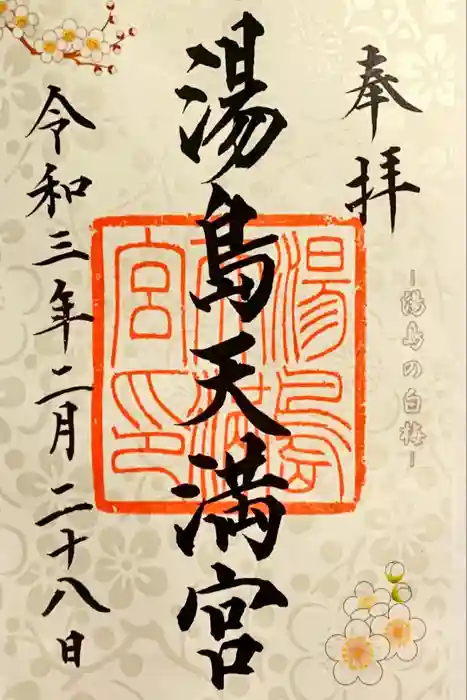 奉拝
湯島の白梅
湯島天満宮
湯島天満宮印
令和三年二月二十八日